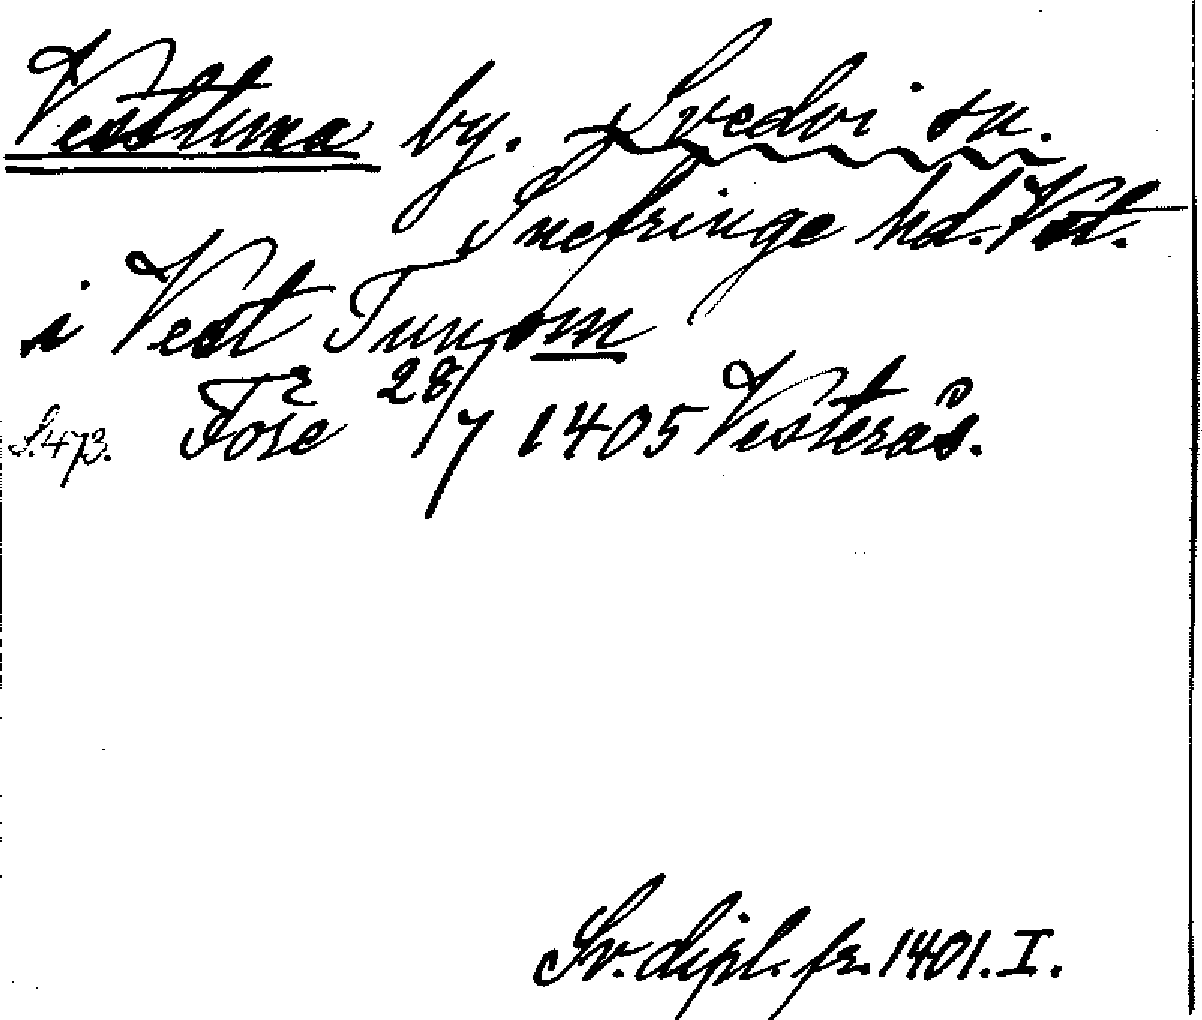 Vesttuna by. Svedvi sn.
Snefringe hd. Vstl.
i Vest Tunom
S. 473. Före 28/7 1405 Vesterås.
Sv. dipl. fr. 1401. I.